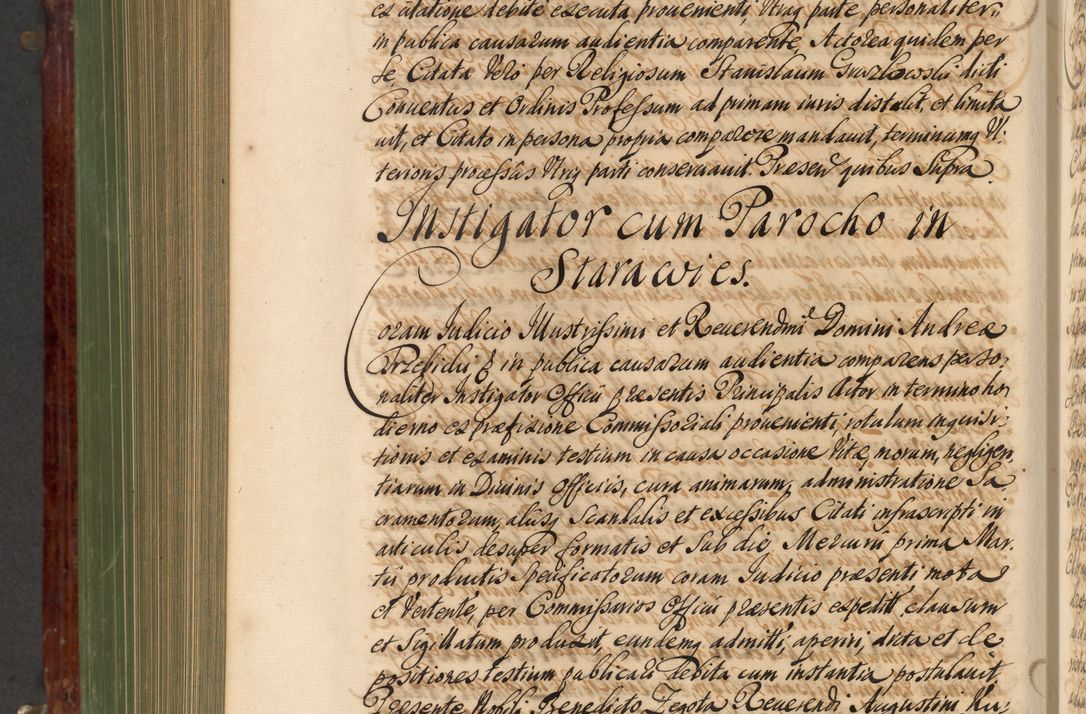 ex citatione debite executa, provenienti, Utraq parte personaliter,
in publica causarum audientia comparente, Actorea quidem per
se Citata Vero per Religiosum Stanislaum dicti
Conventus et Ordinis Professum ad primam iuris distulit, et limita
vit, et Citato in persona propria comparere mandavit, terminumq Ul:
terioris processus Utriq parti conservavit. Presen quibus Supra
Instigator cum Parocho in
Starawies.
Coram Judicio Illustrissimi et Reverendmi Domini Andreæ
Przebidii & in publica causarum audientia comparens perso,
naliter Instigator Officii præsentis Principalis Actor in termino ho,
dierno ex præfixione Commissoriali provenienti, rotulum inquisi:
tionis et examinis testium in causa occasione Vitæ, morum, negligen,
tiarum in Divinis Officiis, cura animarum, administratione Sa
cramentorum, aliisq Scandalis et excessibus Citati infrascripti in
articulis desuper formatis et Sub die, Mercurii prima Mar.
tii productis Specificatorum coram Judicio præsenti mota
et Vertente, per Commissarios Officii præsentis expediti, clausum
et Sigillatum produxit, eundemq admitti, aperiri, dicta et de
positiones testium publicari debita cum instantia postulavit
Præsente Nobili Benedicto Zegota Reverendi Augustini